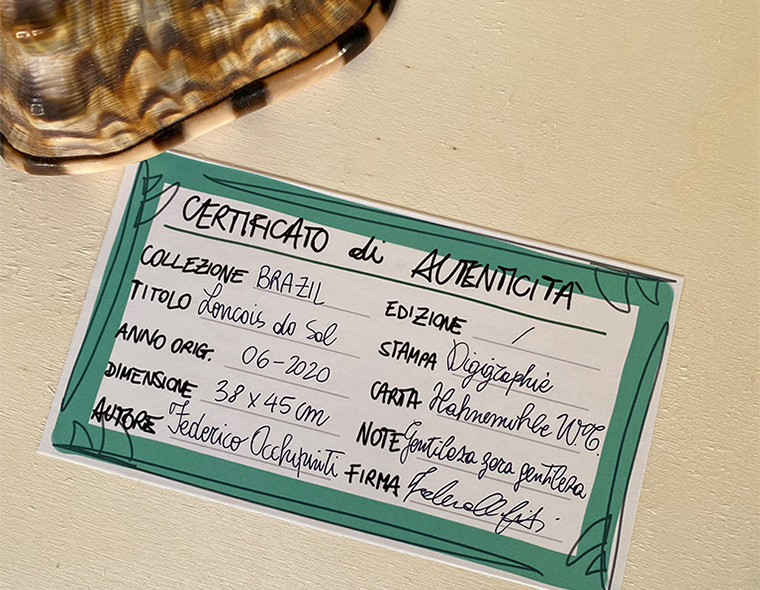 CERTIFICATO di AUTENTICITÀ
COLLEZIONE BRAZIL
TITOLO Loncois do Sol
ANNO ORIG. 06-2020
DIMENSIONE 38 x 45 cm
AUTORE Federico Occhipinti
EDIZIONE /
STAMPA Digigraphie
CARTA Hahnemuhbe W.T.
NOTE Gentilosa gera gentilesa
FIRMA